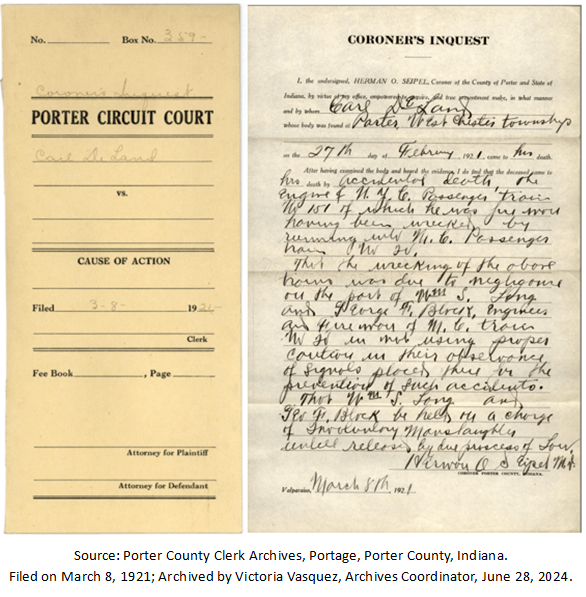 No. Box No. 359-
Coroner's Inquest
PORTER CIRCUIT COURT
Carl De Land
vs.
CAUSE OF ACTION
Filed 3-8- 1921-
Clerk
Fee Book , Page
Attorney for Plaintiff
Attorney for Defendant
CORONER'S INQUEST
I, the undersigned, HERMAN O. SEIPEL, Coroner of the County of Porter and State of
Indiana, by virtue of my office, and true presentment make, in what manner
and by whom Carl De Land
whose body was found at Porter, West Chester township
on the 27th day of February 1921 came to his death.
After having examined the body and heard the evidence, I do find that the deceased came to
his death by accidental death the
Engine of N. Y. C. Passenger train
No 151 of which he was fireman
having been wrecked by
running into M. C. Passenger
train No 20.
That the wrecking of the above
trains was due to negligance
on the part of Wm S. Long
and George F. Block, Engineer
and fireman of M. C. train
No 20 in not using proper
caution in their observance
of signals placed there for the
prevention of such accidents.
That Wm S. Long and
Geo F. Block be held on a charge
of Involuntary Manslaughter
untill released by due process of Law.
Herman O Seipel M.D.
CORONER PORTER COUNTY, INDIANA.
Valparaiso, March 8th, 1921
Source: Porter County Clerk Archives, Portage, Porter County, Indiana.
Filed on March 8, 1921; Archived by Victoria Vasquez, Archives Coordinator, June 28, 2024.